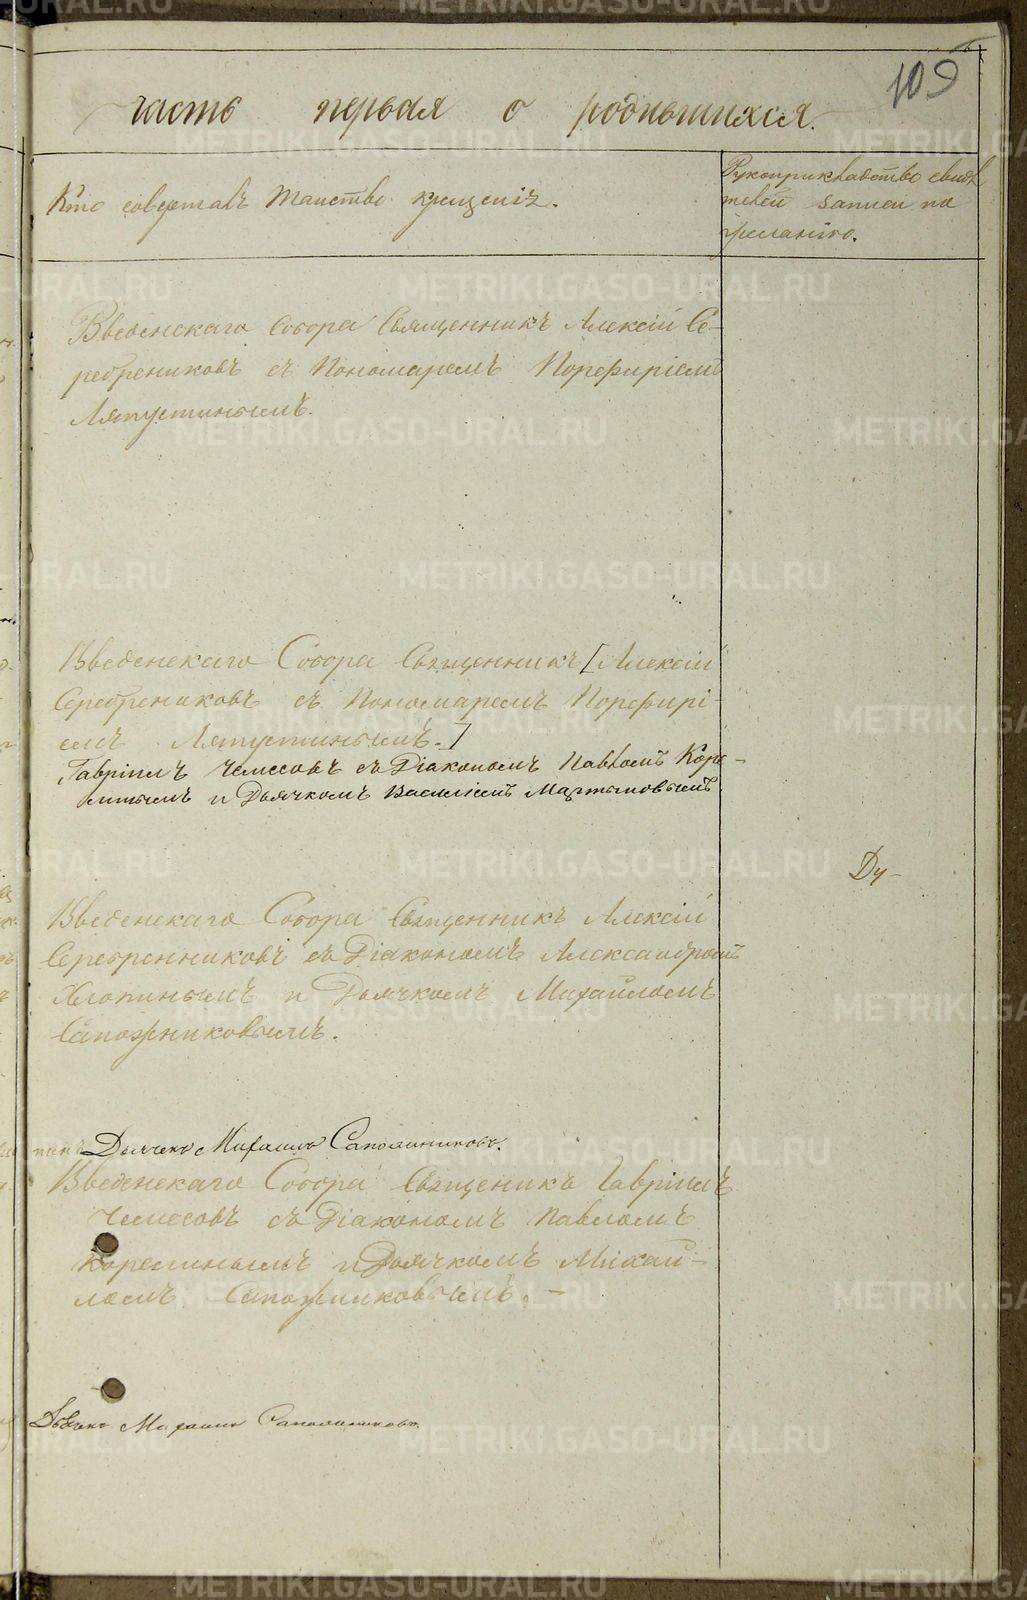 109
часть первая о родившихся.
Кто совершалъ таинство крещенія.
Рукоприкладство свидѣ
телей записи по
желанію.
Введенскаго Собора Священникъ Алексій Се-
ребрениковъ съ Пономаремъ Порфиріемъ
Ляпустинымъ.
Введенскаго Собора Священникъ [Алексій
Серебрениковъ съ Пономаремъ Порфирі-
емъ Ляпустинымъ.]
Гавріилъ Чемесовъ съ Діакономъ Павломъ Коре-
литымъ и Дьячкомъ Василіемъ Мартыновымъ
Ду-
Введенскаго Собора Священникъ Алексій
Серебренниковъ съ Діакономъ Александромъ
Хлопинымъ и Дьячкомъ Михайломъ
Сапожниковымъ.
Дьячекъ Михаилъ Сапожниковъ.
Введенскаго Собора Священикъ Гавріилъ
Чемесовъ съ Діакономъ Павломъ
и Дьячкомъ Михай-
ломъ Сапожниковымъ. -
Дьячекъ Михаилъ Сапожниковъ
METRIKI.GASO-URAL.RU